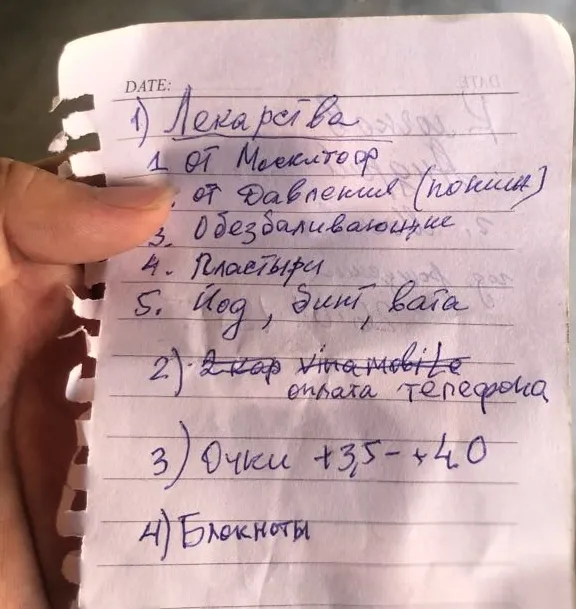 DATE:
1) Лекарства
1. от Москитоф
от Давления (пониж)
3. Обезбаливающие
4. Пластыри
5. Йод, бинт, вата
2) 2 кар VinaMobile
оплата телефона
3) Очки +3,5 - +4.0
4) Блокноты